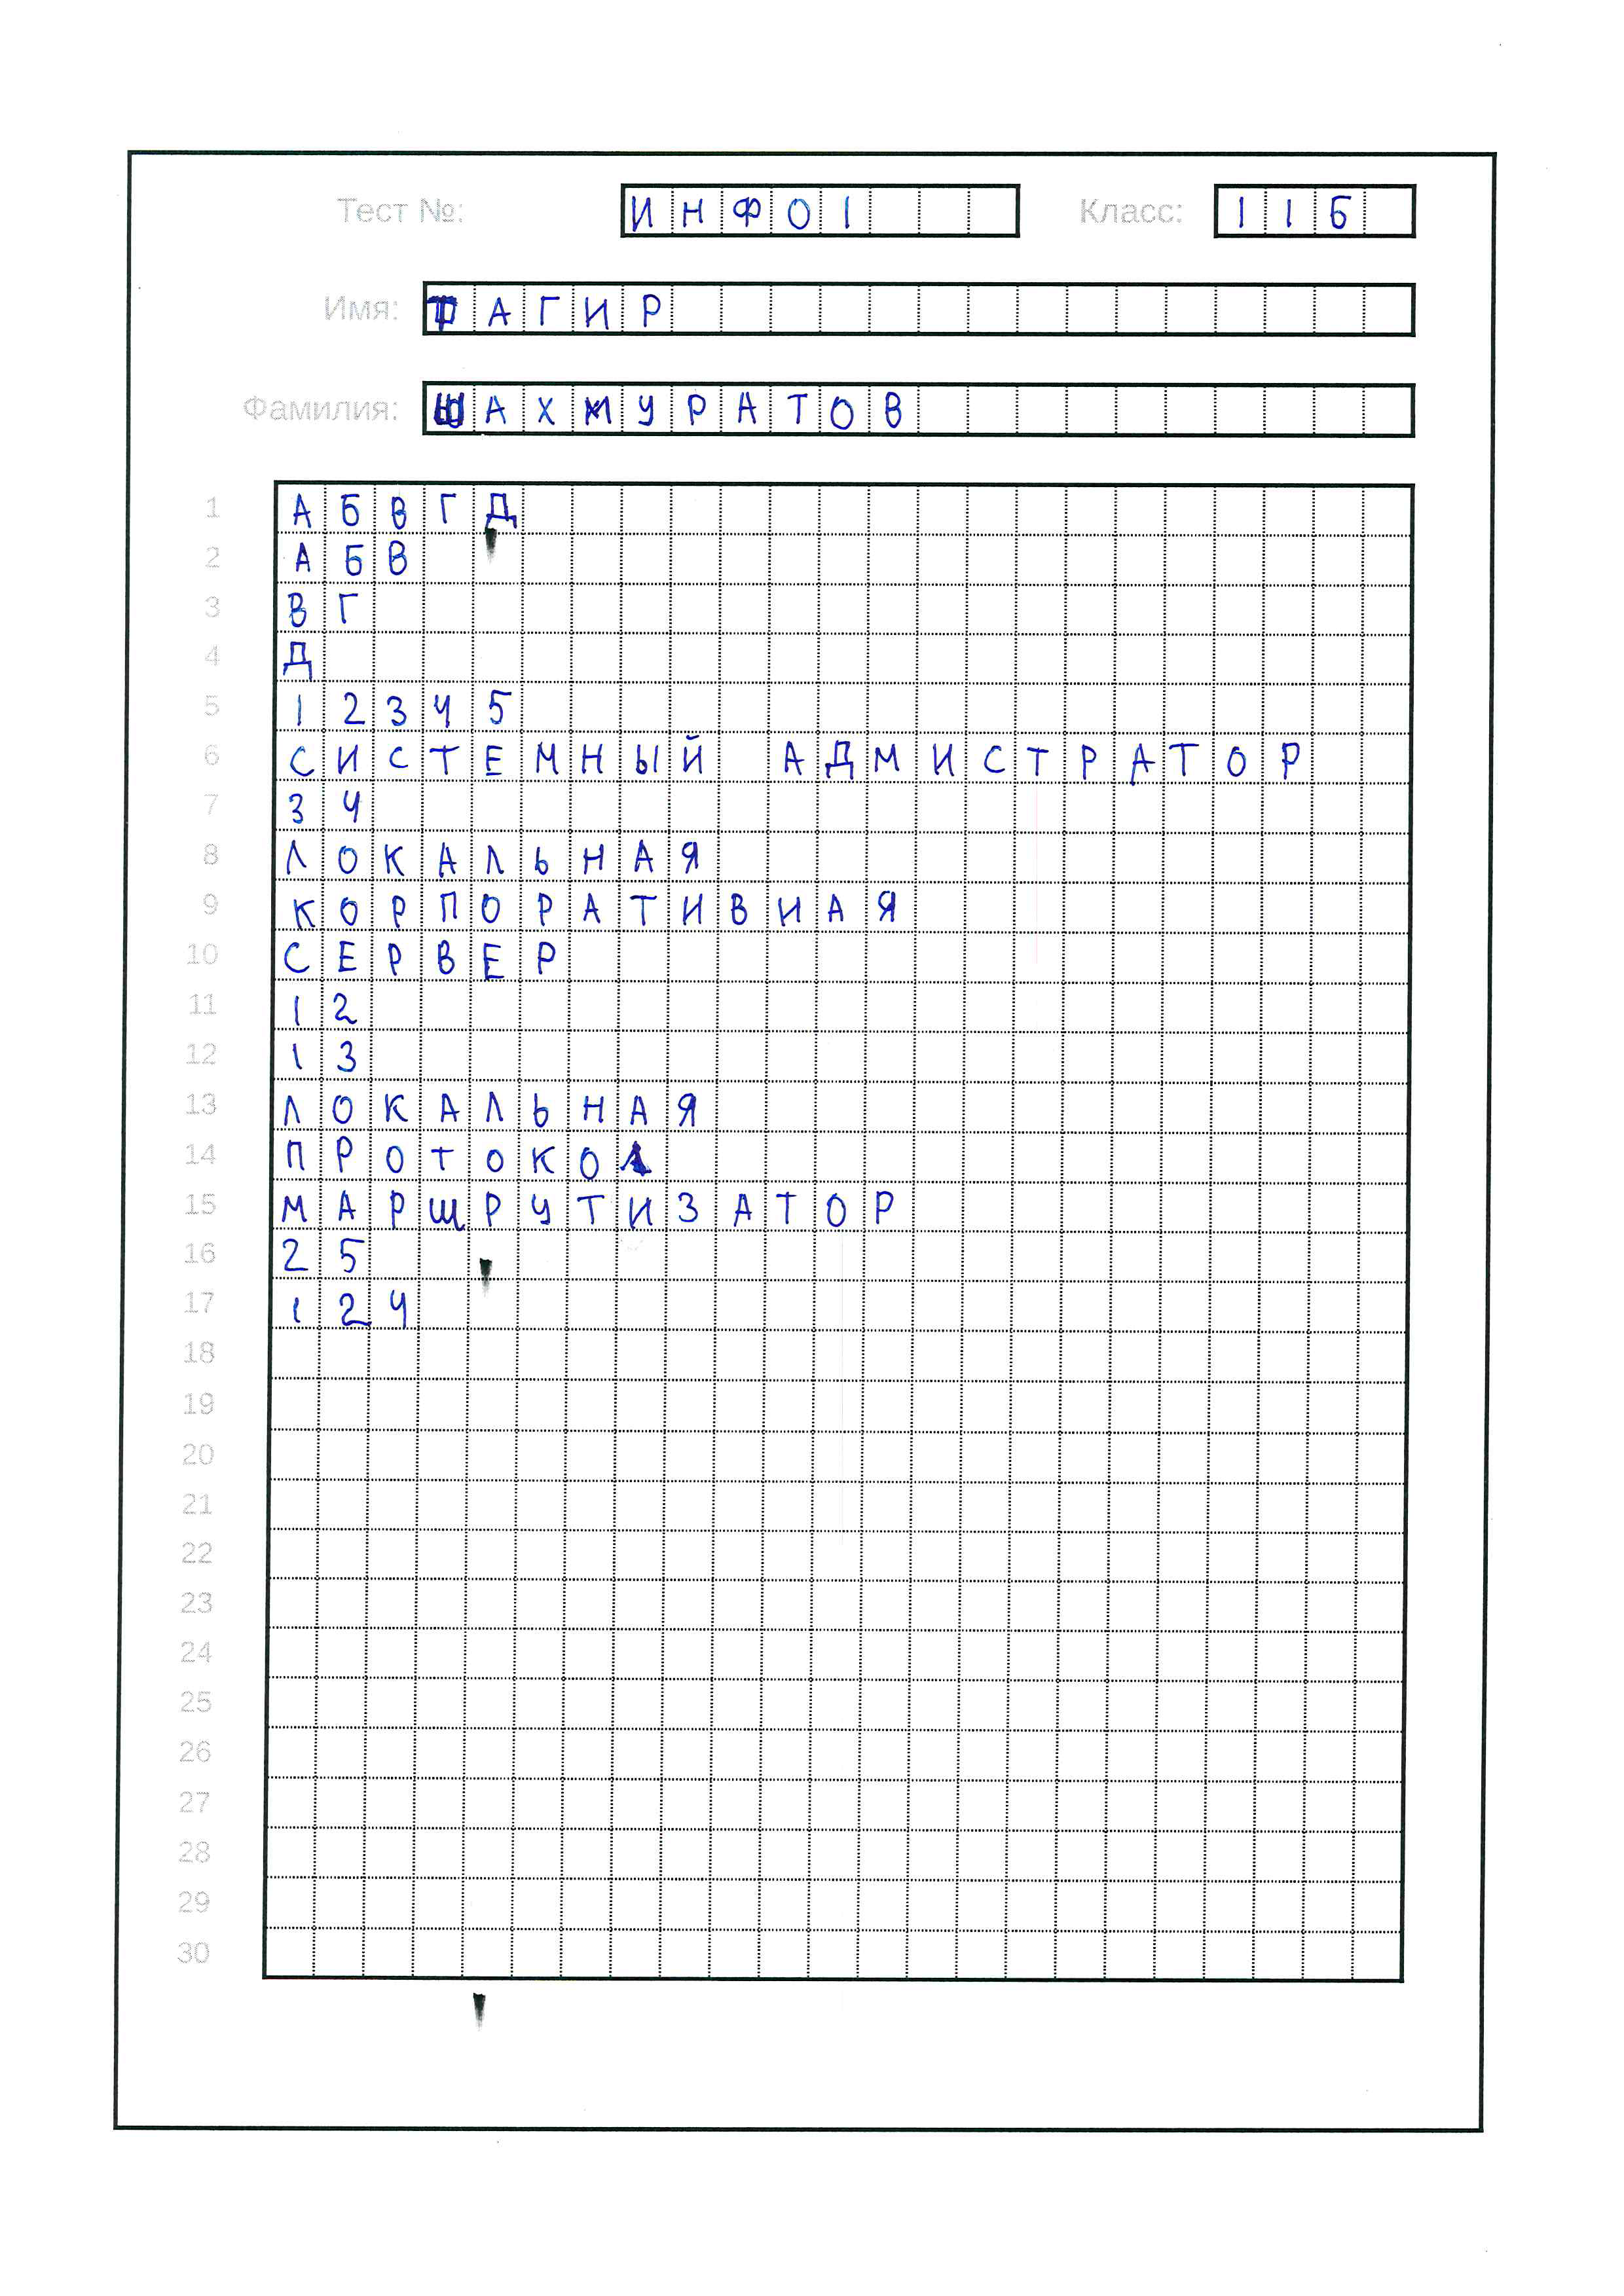 Тест №: ИНФ01 Класс: 11Б
Имя: ТАГИР
Фамилия: ШАХМУРАТОВ
1 АБВГД
2 АБВ
3 ВГ
4 Д
5 12345
6 СИСТЕМНЫЙ АДМИСТРАТОР
7 34
8 ЛОКАЛЬНАЯ
9 КОРПОРАТИВНАЯ
10 СЕРВЕР
11 12
12 13
13 ЛОКАЛЬНАЯ
14 ПРОТОКОЛ
15 МАРШРУТИЗАТОР
16 25
17 124
18
19
20
21
22
23
24
25
26
27
28
29
30